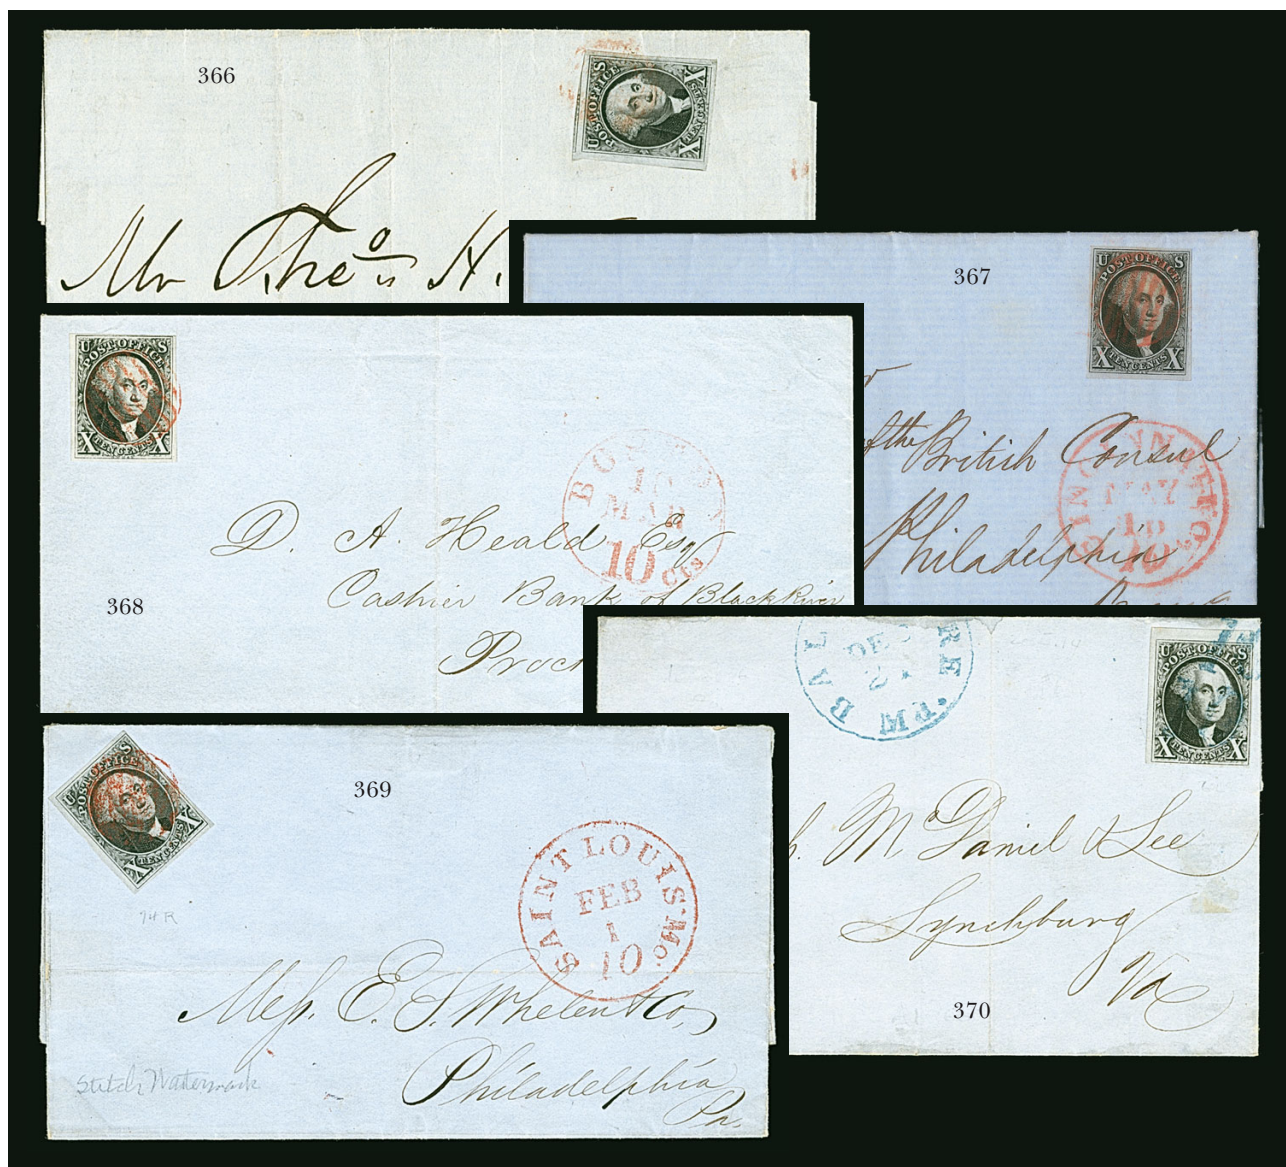 366
U S
POST OFFICE
X TEN CENTS X
Mr Theo.s H.
367
U S
POST OFFICE
X TEN CENTS X
of the British Consul
CINCINNATI O.
MAY
18
10
Philadelphia
U S
POST OFFICE
X TEN CENTS X
BOSTON
10
MAR
10 cts
D. A. Heald Esq
Cashier Bank of Black River
368
Proct
BAL RE . PM
DE
U S
POST OFFICE
X TEN CENTS X
McDaniel & Lee
Lynchburg
Va
370
U S
POST OFFICE
X TEN CENTS X
369
SAINT LOUIS Mo.
FEB
1
10
74 R
Mess. E. S. Whelen & Co,
Philadelphia
Pa.
Stitch Watermark